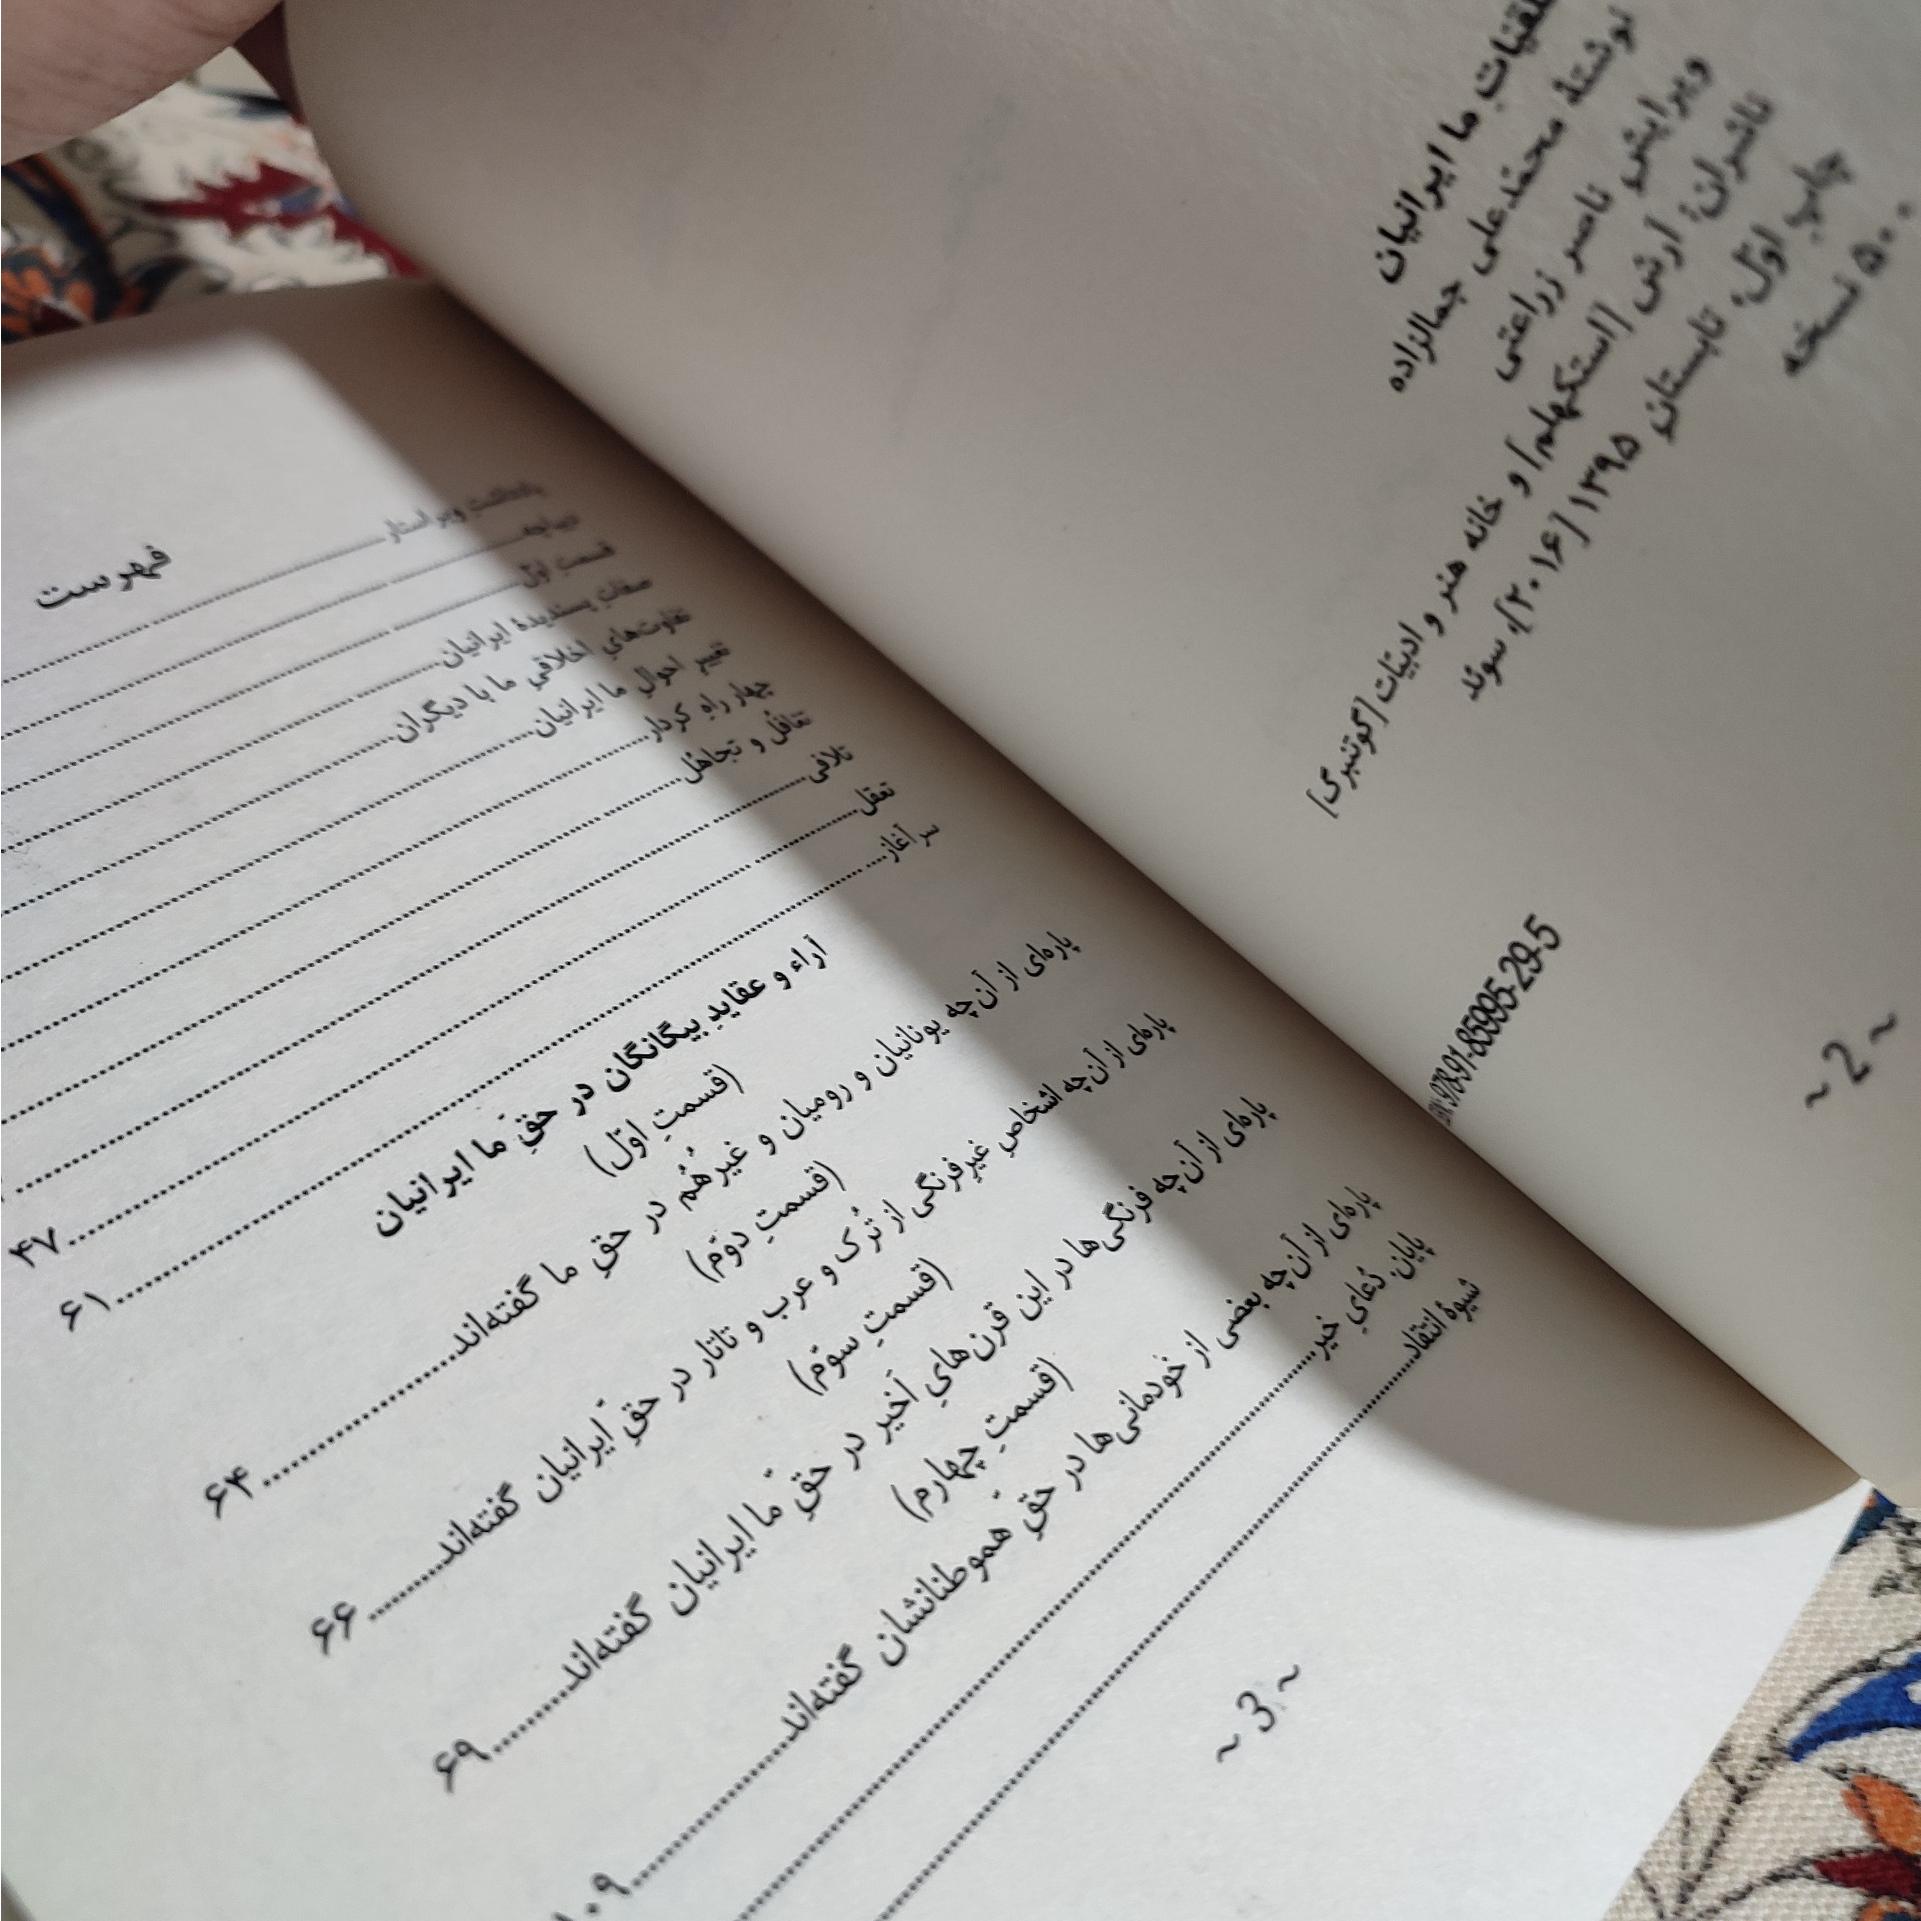 ما ایرانیان
نوشتهٔ محمدعلی جمالزاده
ویرایش ناصر زراعتی
ناشران: ارش [استکهلم] و خانه هنر و ادبیّات [گوتنبرگ]
چاپ اوّل، تابستان ۱۳۹۵ [۲۰۱۶]، سوئد
۵۰۰ نسخه
978-91-85995-29-5
~ 2 ~
فهرست
یادداشتِ ویراستار
دیباچه
قسمتِ اوّل
صفاتِ پسندیدهٔ ایرانیان
تفاوت‌هایِ اخلاقیِ ما با دیگران
تغییر احوالِ ما ایرانیان
چهار راهِ کردار
تغافُل و تجاهُل
تلافی
تعقل ۴۷
سرآغاز ۶۱
آراء و عقایدِ بیگانگان در حقِّ ما ایرانیان
(قسمتِ اوّل)
پاره‌ای از آن‌چه یونانیان و رومیان و غیرهُم در حقِ ما گفته‌اند ۶۴
(قسمتِ دوّم)
پاره‌ای از آن‌چه اشخاصِ غیرِفرنگی از تُرک و عرب و تاتار در حقِّ ایرانیان گفته‌اند ۶۶
(قسمتِ سوّم)
پاره‌ای از آن‌چه فرنگی‌ها در این قرن‌هایِ اَخیر در حقِّ ما ایرانیان گفته‌اند ۶۹
(قسمتِ چهارم)
پاره‌ای از آن‌چه بعضی از خودمانی‌ها در حقِّ هموطنانشان گفته‌اند ۱۰۹
پایان: دُعایِ خیر
شیوهٔ انتقاد
~ 3 ~